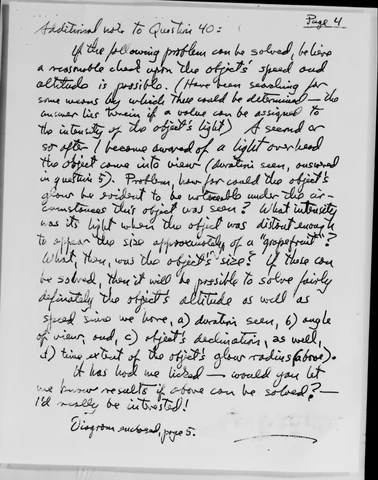 Page 4
Additional note to Question 40:
If the following problem can be solved, believe
a reasonable check upon the object's speed and
altitude is possible. (Have been searching for
some means by which these could be determined — the
answer lies therein if a value can be assigned to
the intensity of the object's light) A second or
so after I became awared of a light overhead
the object came into view (duration seen, answered
in question 5). Problem, how far could the object's
glow be evident to be noticeable under the cir-
cumstances this object was seen? What intensity
was its light when the object was distant enough
to appear the size approximately of a "grapefruit"?
What, then, was the object's size? If these can
be solved, then it will be possible to solve fairly
definately the object's altitude as well as
speed since we have, a) duration seen, b) angle
of view, and, c) object's declination, as well,
d) time extent of the object's glow radius (above).
It has had me licked — would you let
me know results if above can be solved? —
I'd really be interested!
Diagram enclosed, page 5.